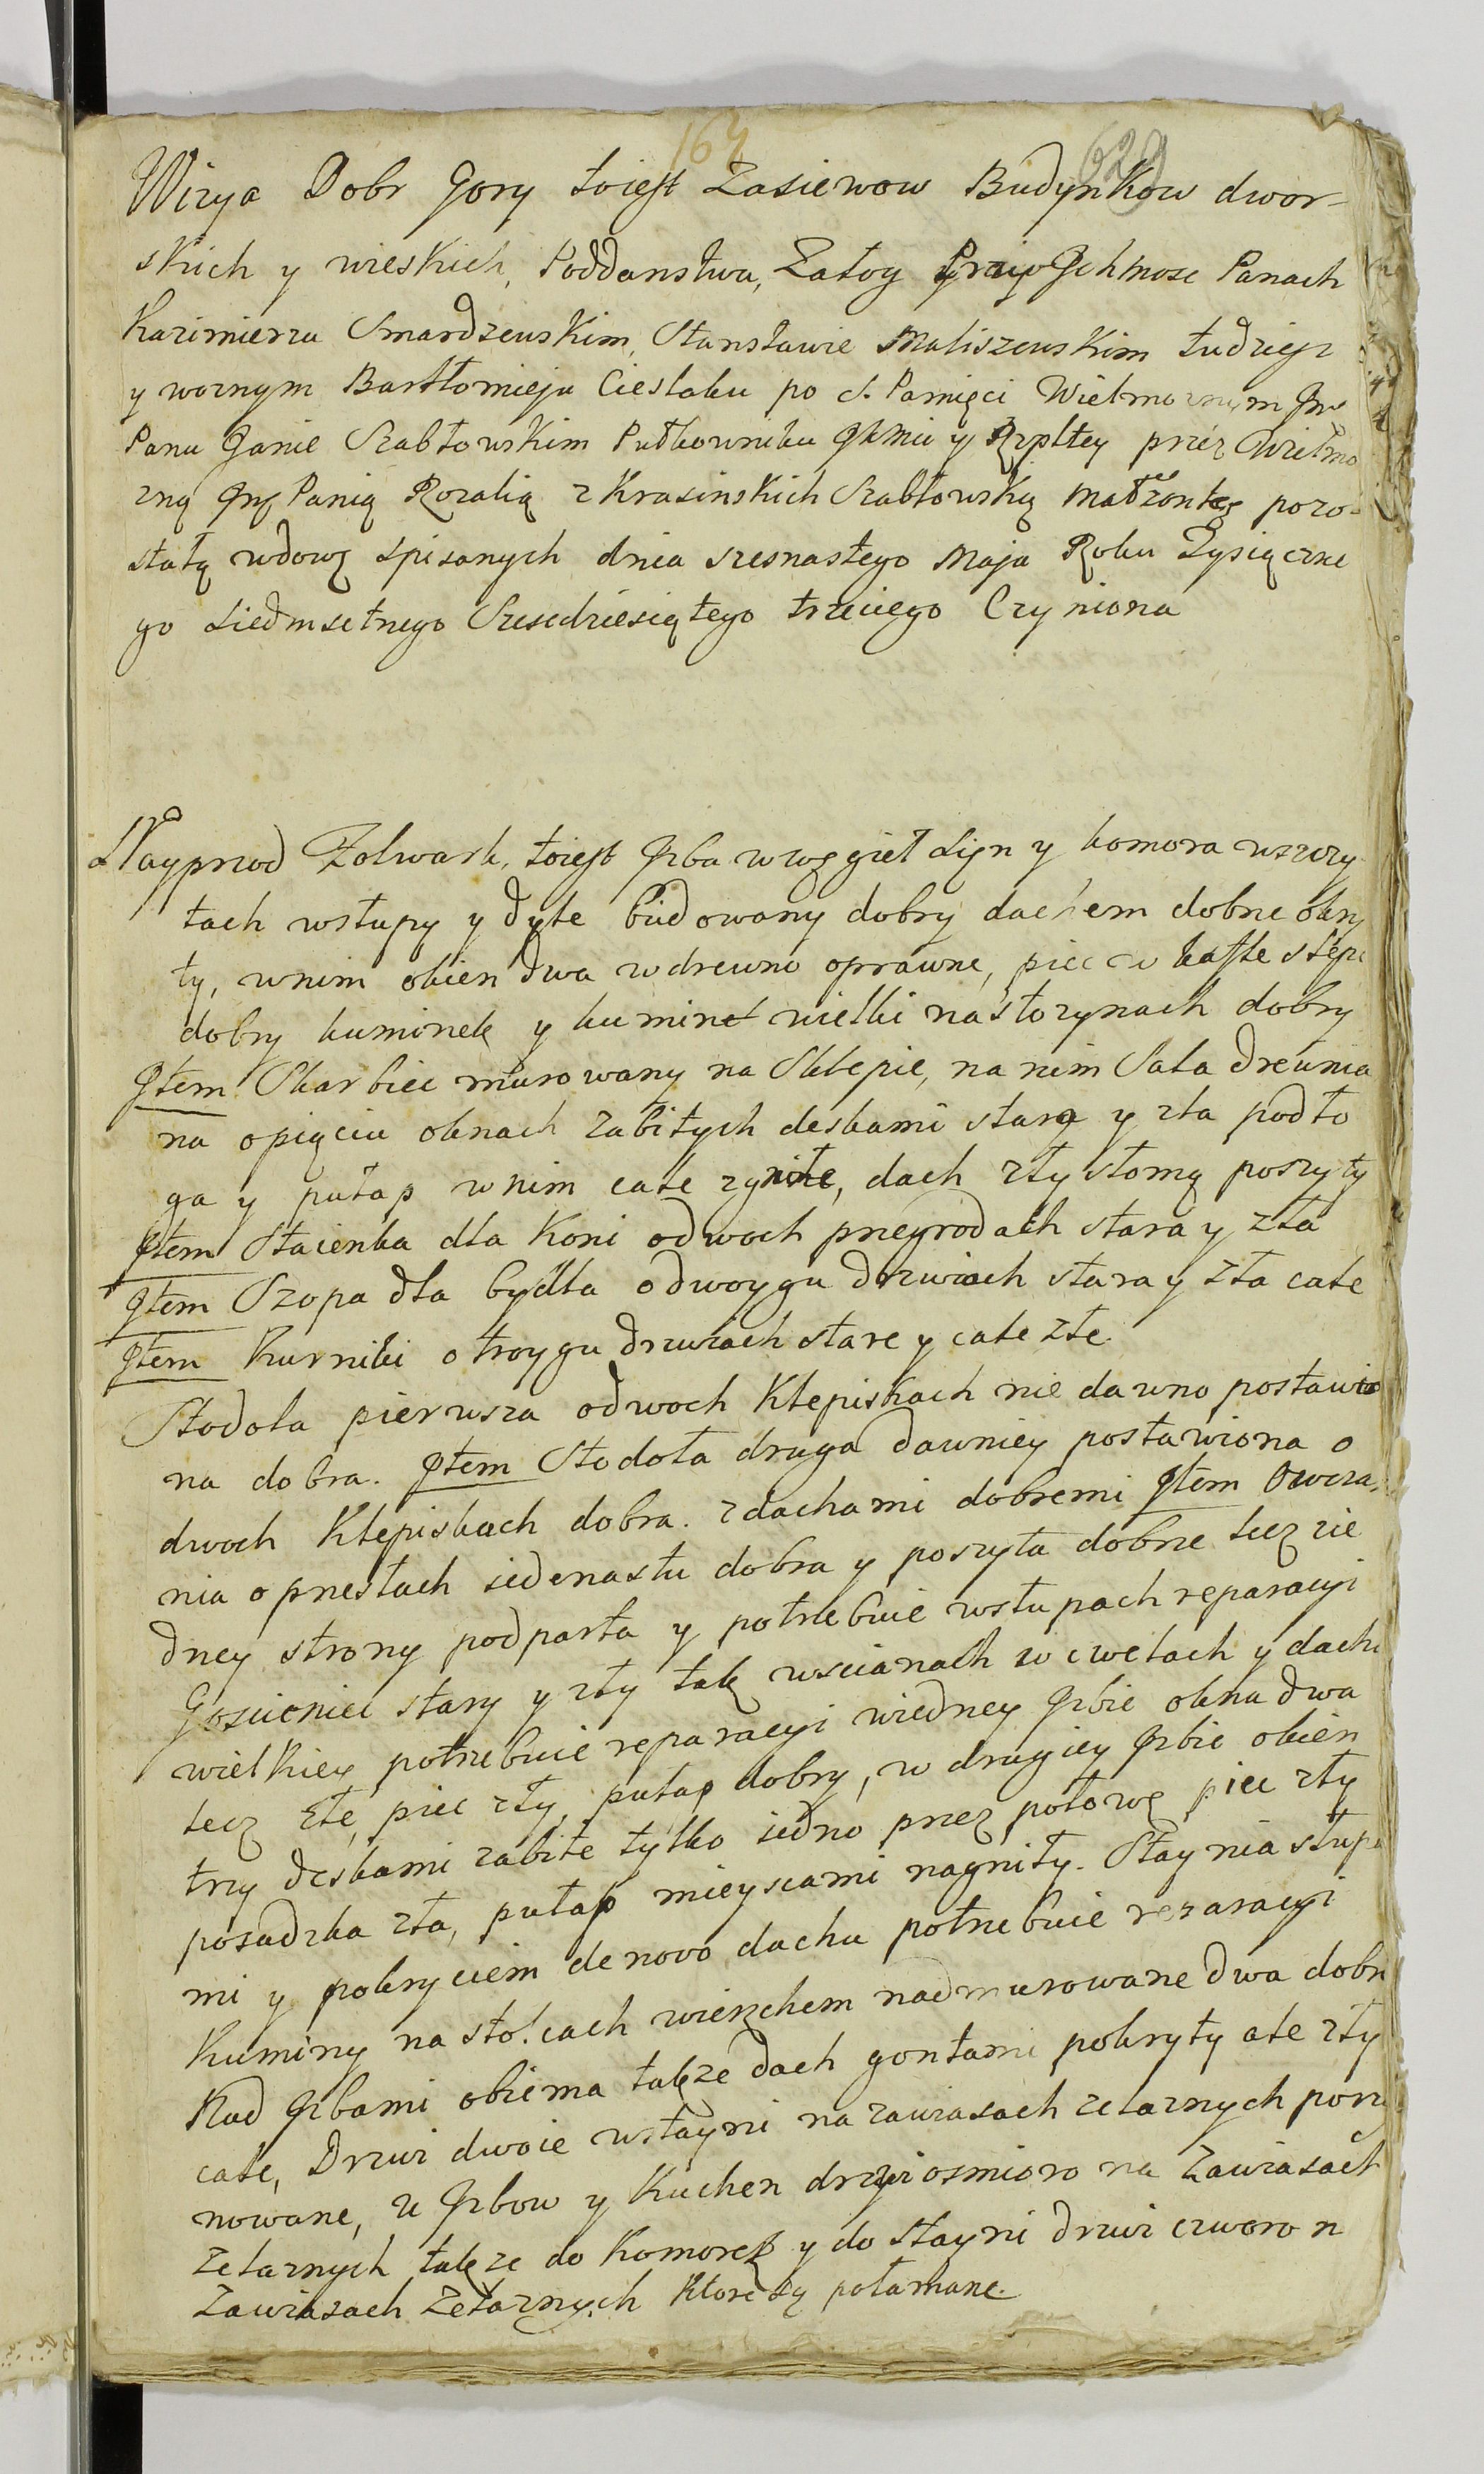 629
Wizya Dobr Gory toiest Zasiewow Budynkow dwor-
skich y wieskich, Poddanstwa, Załog Jchmosc Panach
Kazimierzu Smardzewskim, Stansławie Maliszewskim tudziesz
y woznym Bartłomieju Cieslaku po s. Pamięci Wielmoznym Jm
Panu Janie Szabłowskim Pułkowniku Jkmci y Rzpltey przez Wielmo
zną Jmę Panią Rozalią z Krasinskich Szabłowską małżonkę pozo-
stałą wdowę spisanych dnia szesnastego Maja Roku Tysiączne
go siedmsetnego Szescdziesiątego trzeciego Czyniona
Nayprzod Folwark, toiest Jzba w węgieł Sien y komora w szczy
tach w słupy y dyle budowany dobry dachem dobrze okry
ty, w nim okien dwa w drewno oprawne, piec w kafle slepe
dobry kuminek y kumin wielki na słozynach dobry
Jtem Skarbiec murowany na Sklepie, na nim Sala drewnia
na o pięciu oknach zabitych deskami stara y zła podło
ga y pułap w nim całe zgniłe, dach zły słomą poszyty
Jtem Staienka dla Koni o dwoch przegrodach stara y zła
Jtem Szopa dla bydła o dwoygu drzwiach stara y zła całe
Jtem Kurniki o troygu drzwiach stare y całe złe.
Stodoła pierwsza o dwoch Klepiskach nie dawno postawio
na dobra. Jtem Stodoła druga dawniey postawiona o
dwoch Klepiskach dobra. z dachami dobremi Jtem Owczar
nia o przęsłach iedenastu dobra y poszyta dobrze lecz z ie
dney strony podparta y potrzebuie w słupach reparacyi
Gosciniec stary y zły tak w scianach w cwelach y dachu
wielkiey potrzebuie reparacyi w iedney Jzbie okna dwa
lecz złe, piec zły, pułap dobry, w drugiey Jzbie okien
trzy deskami zabite tylko iedno przez połowę piec zły
posadzka zła, pułap mieyscami nagniły. Staynia słupa
mi y pokryciem de novo dachu potrzebuie reparacyi
Kuminy na stolcach wierzchem nadmurowane dwa dobre
Nad Jzbami obiema także dach gontami pokryty ale zły
całe, Drzwi dwoie w stayni na zawiasach zelaznych porzu
nowane, U Jzbow y Kuchen drzwi osmioro na Zawiasach
zelaznych także do Komorek y do stayni drzwi czworo n
Zawiasach Zelaznych ktore są połamane.